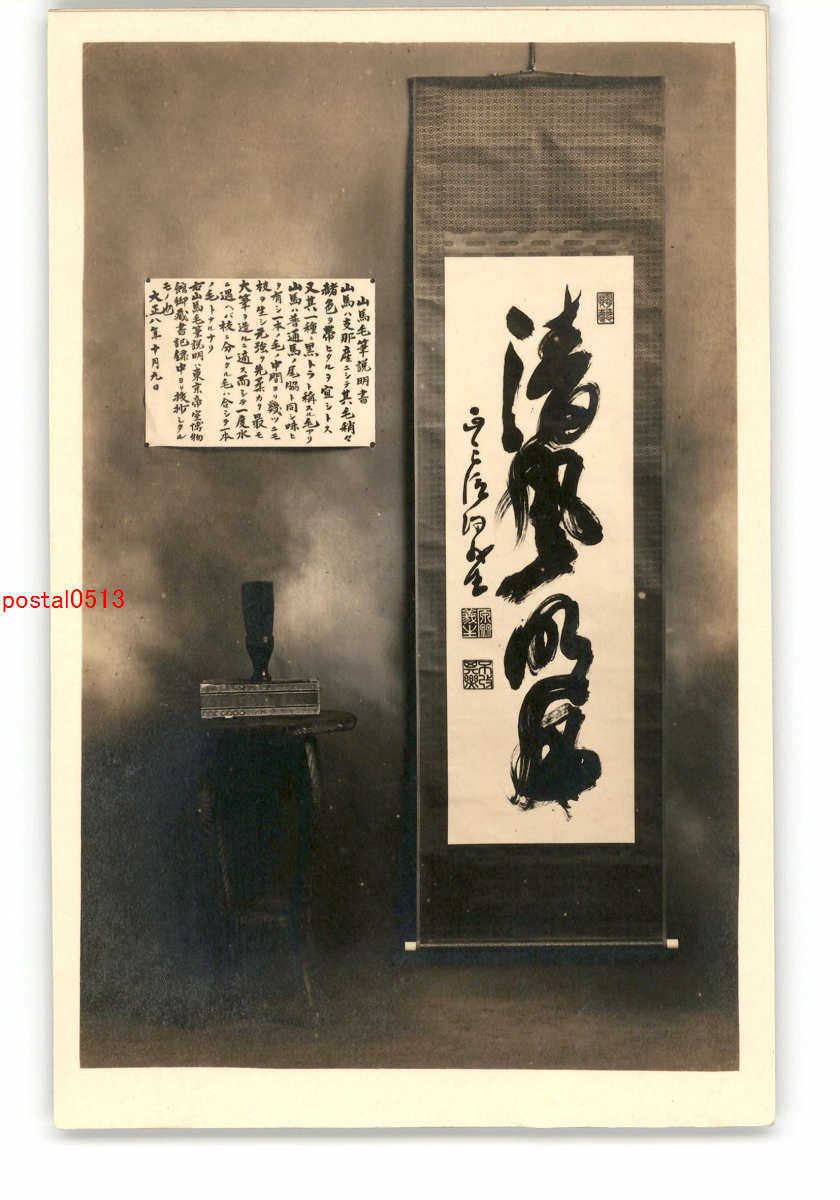 山馬毛筆説明書
山馬ハ支那産ニシテ其毛稍々
赭色ヲ帯ヒタルヲ宜シトス
又其一種ニ黒トラト稱スル毛アリ
山馬ハ普通馬ノ尾脇ト同シ味ヒ
ヲ有シ一本ノ毛ノ中間ヨリ幾ツニモ
枝ヲ生シ元強ク先柔カク最モ
大筆ヲ造ルニ適ス而シテ一度水
ニ遇ヘバ枝ニ分レタル毛ハ合シテ一本
ノ毛トナルナリ
右山馬毛筆説明ハ東京帝室博物
館御蔵書記録中ヨリ抜抄シタル
モノ也
大正八年十月九日
清風明月
postal0513